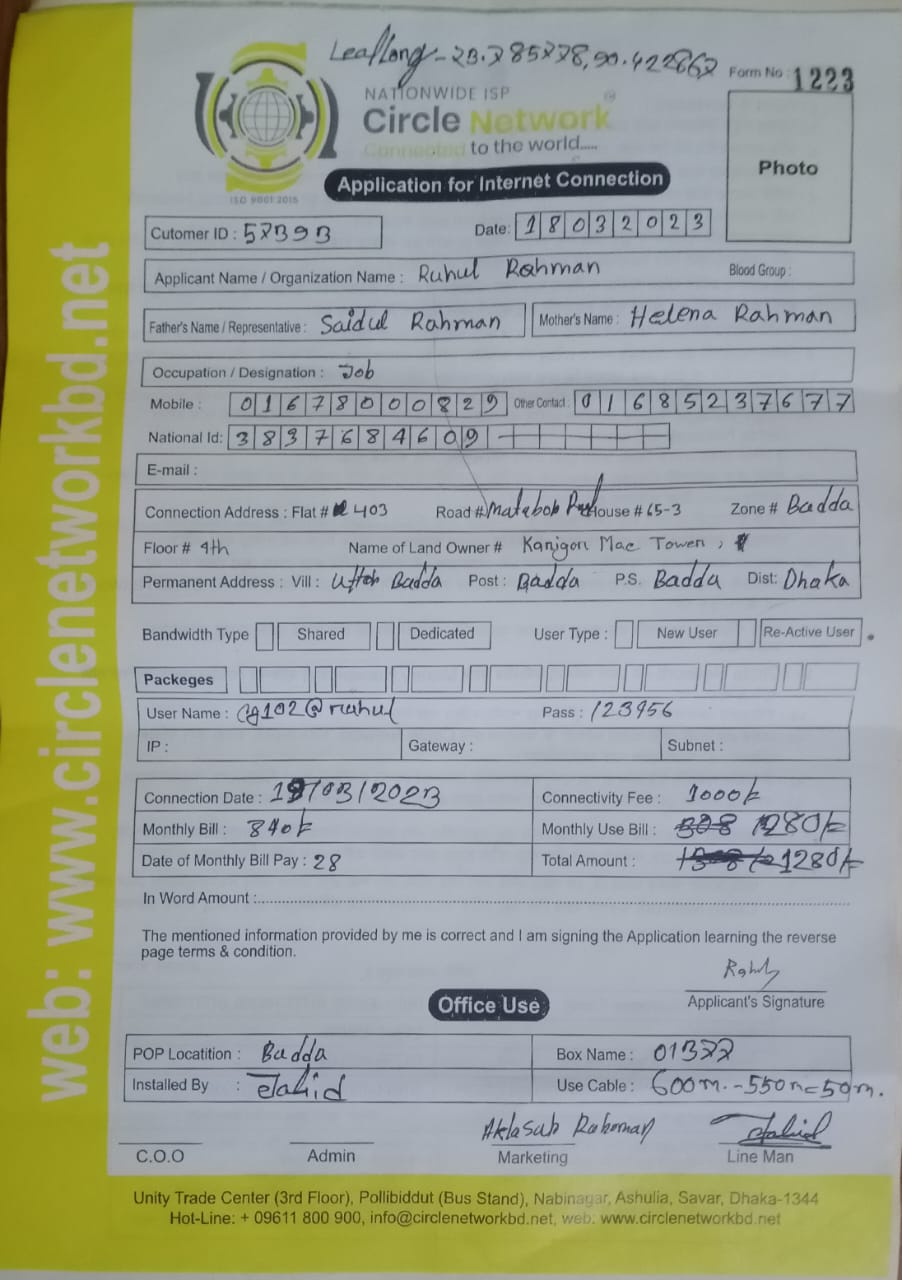 Form No : 1223
NATIONWIDE ISP
Circle Network
Connected to the world.....
ISO 9001:2015
Application for Internet Connection
Photo
Cutomer ID :
Date: 18032023
Applicant Name / Organization Name : Ruhul Rahman Blood Group :
Father's Name / Representative : Saidul Rahman Mother's Name : Helena Rahman
Occupation / Designation : Job
Mobile : 01678000829 Other Contact : 01685237677
National Id: 3837684609
E-mail :
Connection Address : Flat # 403 Road # House # 65-3 Zone # Badda
Floor # 4th Name of Land Owner # Kanigon Mac Tower ,
Permanent Address : Vill : Badda Post : Badda P.S. Badda Dist: Dhaka
Bandwidth Type Shared Dedicated User Type : New User Re-Active User
Packeges
User Name : Pass :
IP : Gateway : Subnet :
Connection Date : /03/2023 Connectivity Fee : 1000/-
Monthly Bill : 840/- Monthly Use Bill : 280/-
Date of Monthly Bill Pay : 28 Total Amount : 1280/-
In Word Amount :
The mentioned information provided by me is correct and I am signing the Application learning the reverse
page terms & condition.
Applicant's Signature
Office Use
POP Locatition : Badda Box Name :
Installed By : Jahid Use Cable : 600m.-550m=50m.
C.O.O Admin Marketing Line Man
Unity Trade Center (3rd Floor), Pollibiddut (Bus Stand), Nabinagar, Ashulia, Savar, Dhaka-1344
Hot-Line: + 09611 800 900, info@circlenetworkbd.net, web: www.circlenetworkbd.net
web: www.circlenetworkbd.net